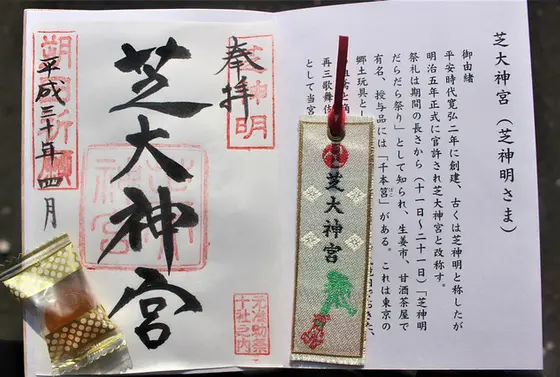 芝大神宮（芝神明さま）
御由緒
平安時代寛弘二年に創建、古くは芝神明と称したが
明治五年正式に官許され芝大神宮と改称す。
祭礼は期間の長さから（十一日〜二十一日）「芝神明
だらだら祭り」として知られ、生姜市、甘酒茶屋で
有名、授与品には「千木筥」がある。これは東京の
郷土玩具と
再三歌舞伎
として当宮
芝大神宮
奉拝
芝神明
芝大神宮
元准勅祭
十社之内
平成三十年四月